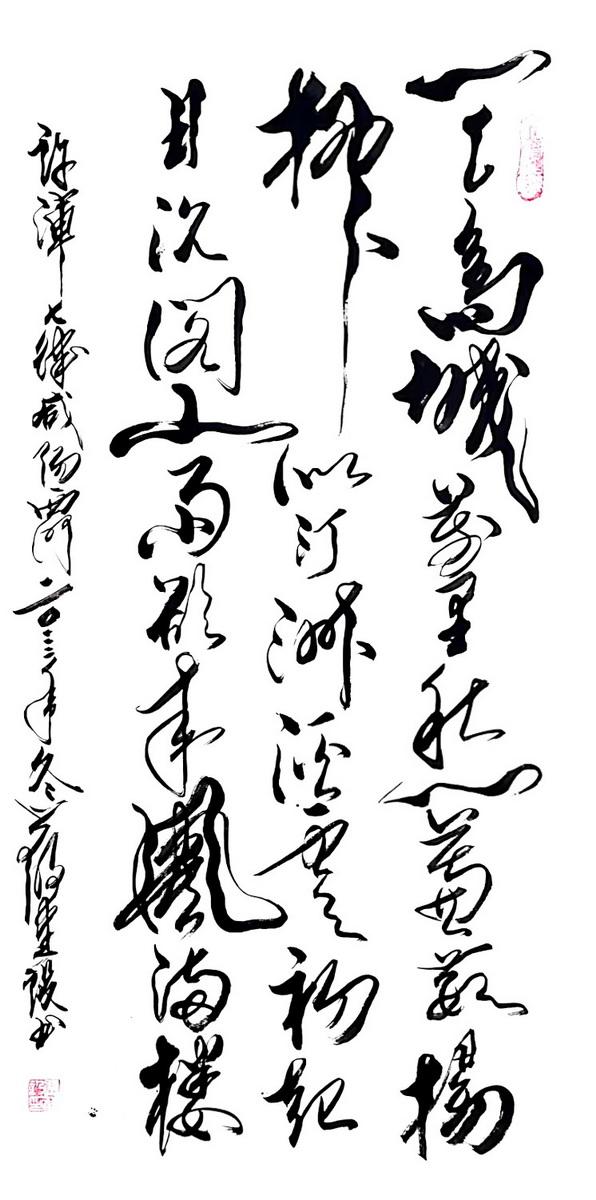 一上高城萬里愁蒹葭楊
柳似汀洲溪雲初起
日沉閣山雨欲來風滿樓
許渾七律咸陽 二〇二三年冬 書